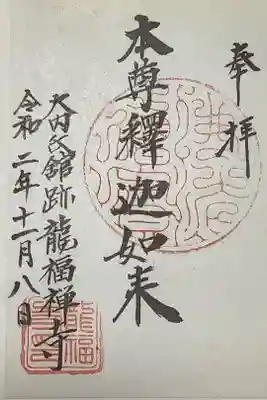 奉拝
本尊釋迦如来
大内氏館跡龍福禅寺
令和二年十二月八日
龍福